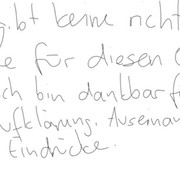 gibt keine richt
e für diesen
ch bin dankbar f
ufklärung. Auseinan
Eindrücke.